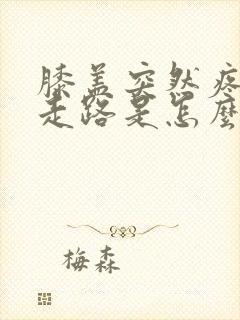 膝盖突然疼
走路是怎麼
梅森